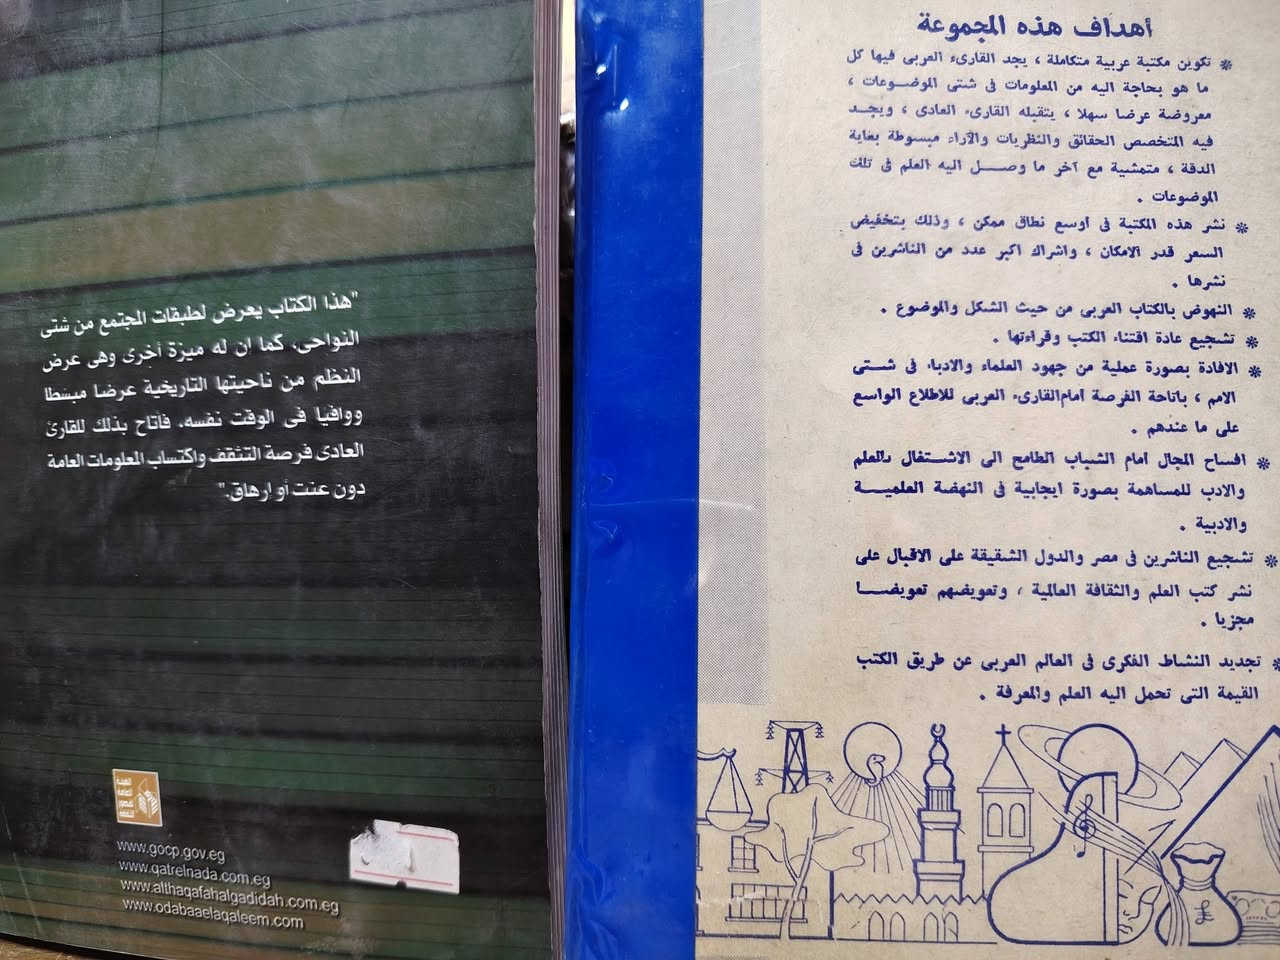 أهداف هذه المجموعة
* تكوين مكتبة عربية متكاملة ، يجد القارىء العربى فيها كل
ما هو بحاجة اليه من المعلومات فى شتى الموضوعات ،
معروضة عرضا سهلا ، يتقبله القارىء العادى ، ويجد
فيه المتخصص الحقائق والنظريات والآراء مبسوطة بغاية
الدقة ، متمشية مع آخر ما وصل اليه العلم فى تلك
الموضوعات .
* نشر هذه المكتبة فى اوسع نطاق ممكن ، وذلك بتخفيض
السعر قدر الامكان ، واشراك اكبر عدد من الناشرين فى
نشرها .
* النهوض بالكتاب العربى من حيث الشكل والموضوع .
* تشجيع عادة اقتناء الكتب وقراءتها .
* الافادة بصورة عملية من جهود العلماء والادباء فى شتى
الامم ، باتاحة الفرصة امام القارىء العربى للاطلاع الواسع
على ما عندهم .
* افساح المجال امام الشباب الطامح الى الاشتغال بالعلم
والادب للمساهمة بصورة ايجابية فى النهضة العلمية
والادبية .
* تشجيع الناشرين فى مصر والدول الشقيقة على الاقبال على
نشر كتب العلم والثقافة العالمية ، وتعويضهم تعويضا
مجزيا .
* تجديد النشاط الفكرى فى العالم العربى عن طريق الكتب
القيمة التى تحمل اليه العلم والمعرفة .
£
"هذا الكتاب يعرض لطبقات المجتمع من شتى
النواحى، كما ان له ميزة أخرى وهى عرض
النظم من ناحيتها التاريخية عرضا مبسطا
ووافيا فى الوقت نفسه، فأتاح بذلك للقارئ
العادى فرصة التثقف واكتساب المعلومات العامة
دون عنت أو ارهاق."
www.gocp.gov.eg
www.qatrelnada.com.eg
www.althaqafahalgadidah.com.eg
www.odabaaelaqaleem.com